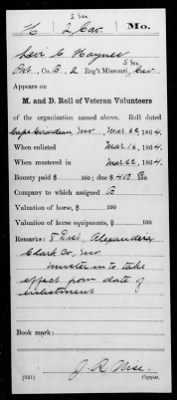 S.M.
H | 2 Cav. | Mo.
Levi C. Haynes
Pvt., Co. B, 2 Reg't Missouri, Cav.
Appears on
M. and D. Roll of Veteran Volunteers
of the organization named above. Roll dated
Cape Girardeau, Mo Mar 22, 1864.
When enlisted Mar 16, 1864.
When mustered in Mar 22, 1864.
Bounty paid $ 100; due $ 400 100
Company to which assigned B
Valuation of horse, $ 100
Valuation of horse equipments, $ 100
Remarks: Alexandria
Clark Co, Mo
muster in to take
effect from date of
enlistment
Book mark:
J. R. Wise.
(541) Copyist.